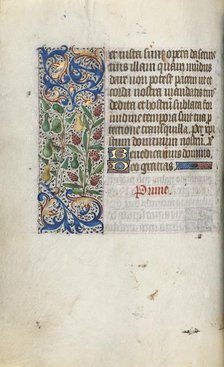 et iusta sunt opera da seruis
tuis illam quam mundus
dare non potest pacem ut et
corda nostra mandatis tuis
dedita et hostium sublata for
midine tempora sint tua pro
tectione tranquilla. Per xp̄m
dominum nostrum.
Benedicamus domino.
Deo gratias.
Prime.